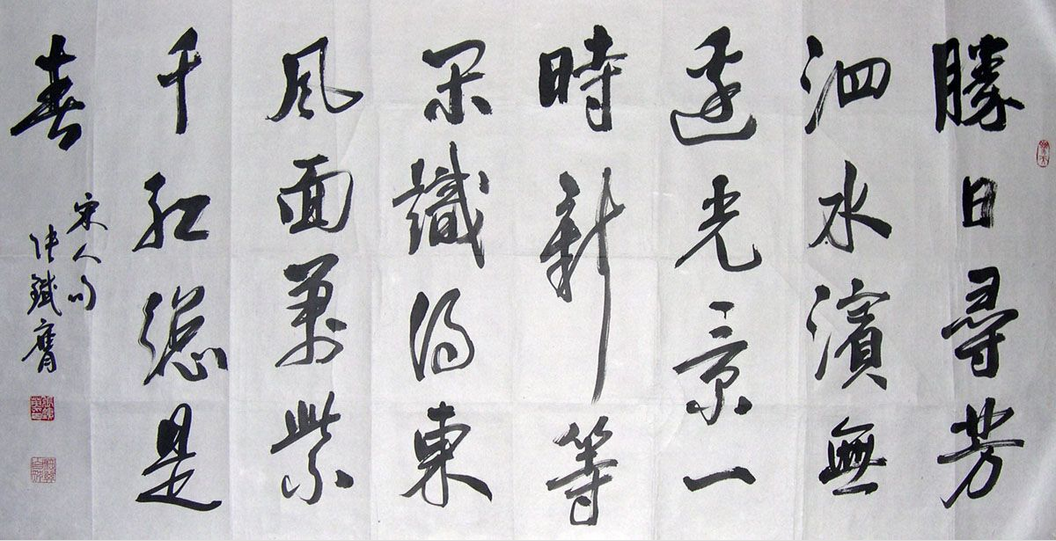 勝日尋芳
泗水濱無
邊光景一
時新等
閑識得東
風面萬紫
千紅總是
春
宋人句
張鐵膺